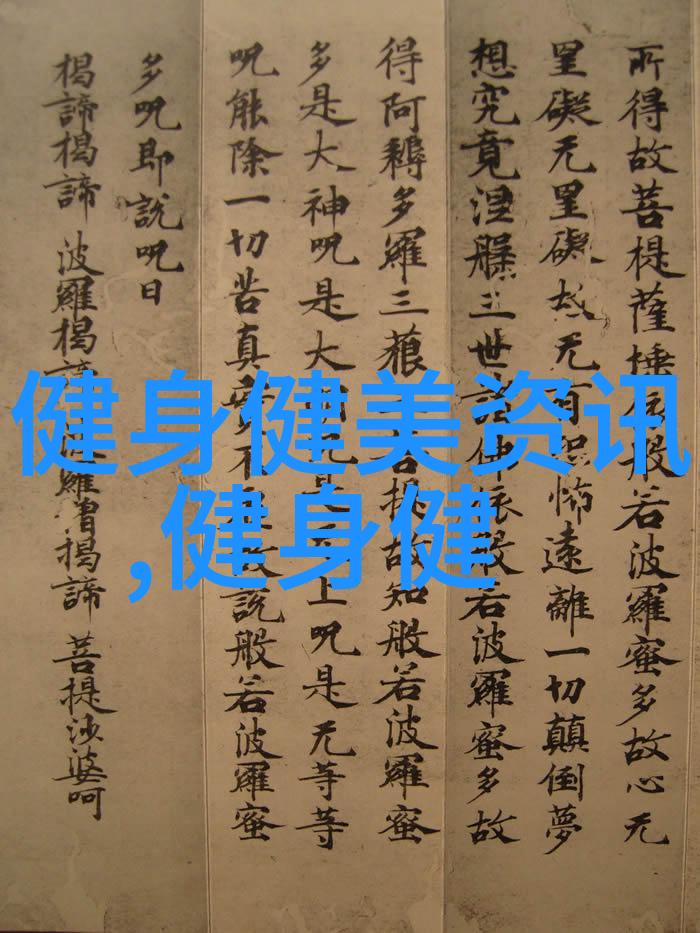 所得故菩提薩埵依般若波羅蜜多故心无
罣礙无罣礙故无有恐怖遠離一切顛倒夢
想究竟涅槃三世諸佛依般若波羅蜜多故
得阿耨多羅三藐菩提故知般若波羅蜜
多是大神呪是大呪是上呪是无等等
呪能除一切苦真實不故說般若波羅蜜
多呪即說呪曰
揭諦揭諦 波羅揭諦 波羅僧揭諦 菩提沙婆呵
健身健美资讯
,健身健